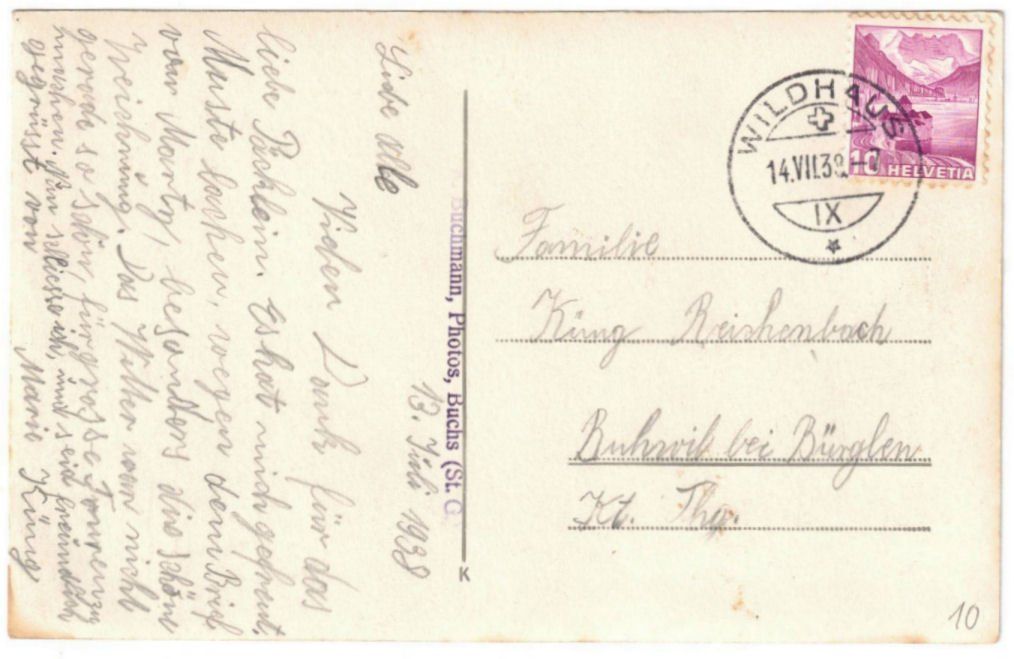 13. Juli 1938
Liebe alle
Vielen Dank für das
liebe Päcklein. Es hat mich gefreut.
Musste lachen, wegen dem Brief
von Marty, besonders die schöne
Zeichnung. Das Wetter war nicht
gerade so schön, für grosse Touren zu
machen. Nun schliesse ich, und seid freundlich
gegrüsst von Marie Küng
Buchmann, Photos, Buchs (St. G
K
WILDHAUS
14.VII.38.-7
IX
10 HELVETIA
Familie
Küng Reishenbach
Buhwil bei Bürglen
Kt. Thg.
10